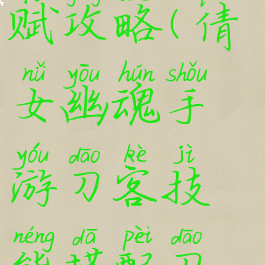 赋攻略(倩
nǚ yōu hún shǒu
女幽魂手
yóu dāo kè jì
游刀客技
néng dā pèi dāo
能搭配刀